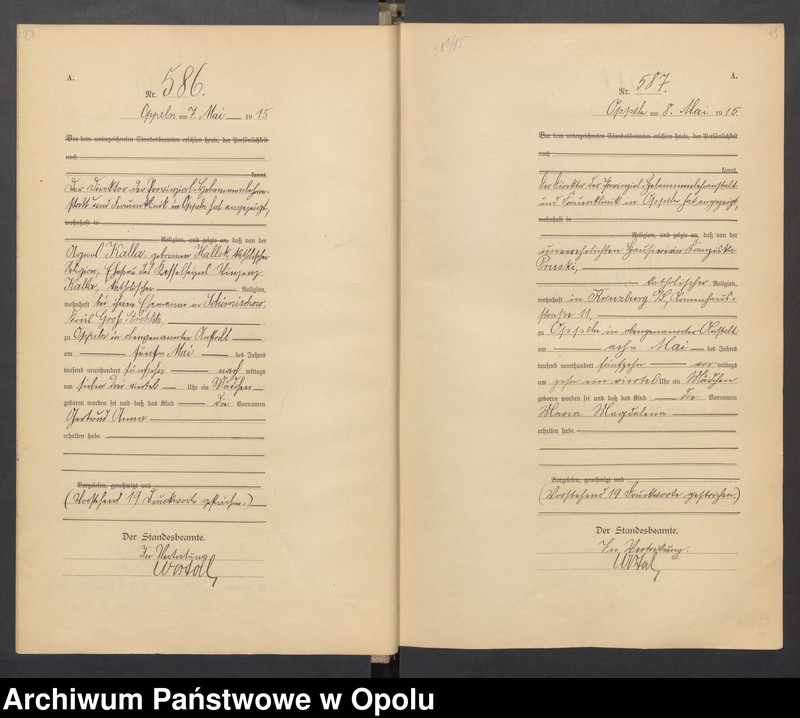 23
A.
Nr. 586.
Oppeln am 7. Mai 1915.
Vor dem unterzeichneten Standesbeamten erschien heute, der Persönlichkeit
nach
kannt,
Der Direktor der Provinzial-Hebammenlehran-
stalt und Frauenklinik in Oppeln hat angezeigt,
wohnhaft in
Religion, und zeigte an, daß von der
Kalla, geborenen Hallek, katholischer
Religion, Ehefrau des Vinzenz
Kalla, katholischer Religion,
wohnhaft bei ihrem Ehemanne in Schimischow,
Kreis Groß Strehlitz,
zu Oppeln in obengenannter Anstalt
am fünften Mai des Jahres
tausend neunhundert fünfzehn nach mittags
um sieben drei viertel Uhr ein Mädchen
geboren worden sei und daß das Kind die Vornamen
Gertrud Anna
erhalten habe.
Vorgelesen, genehmigt und
(Vorstehend 19 Druckworte gestrichen.)
Der Standesbeamte.
In Vertretung
983/15
A.
Nr. 587.
Oppeln am 8. Mai 1915.
Vor dem unterzeichneten Standesbeamten erschien heute, der Persönlichkeit
nach
kannt,
Der Direktor der Provinzial-Hebammenlehranstalt
und Frauenklinik in Oppeln hat angezeigt,
wohnhaft in
Religion, und zeigte an, daß von der
unverehelichten Franziska
katholischer Religion,
wohnhaft in Kreuzburg O/S,
straße 11,
zu Oppeln in obengenannter Anstalt
am acht Mai des Jahres
tausend neunhundert fünfzehn vor mittags
um zehn ein viertel Uhr ein Mädchen
geboren worden sei und daß das Kind die Vornamen
Maria Magdalena
erhalten habe.
Vorgelesen, genehmigt und
(Vorstehend 19 Druckworte gestrichen.)
Der Standesbeamte.
In Vertretung.
Archiwum Państwowe w Opolu